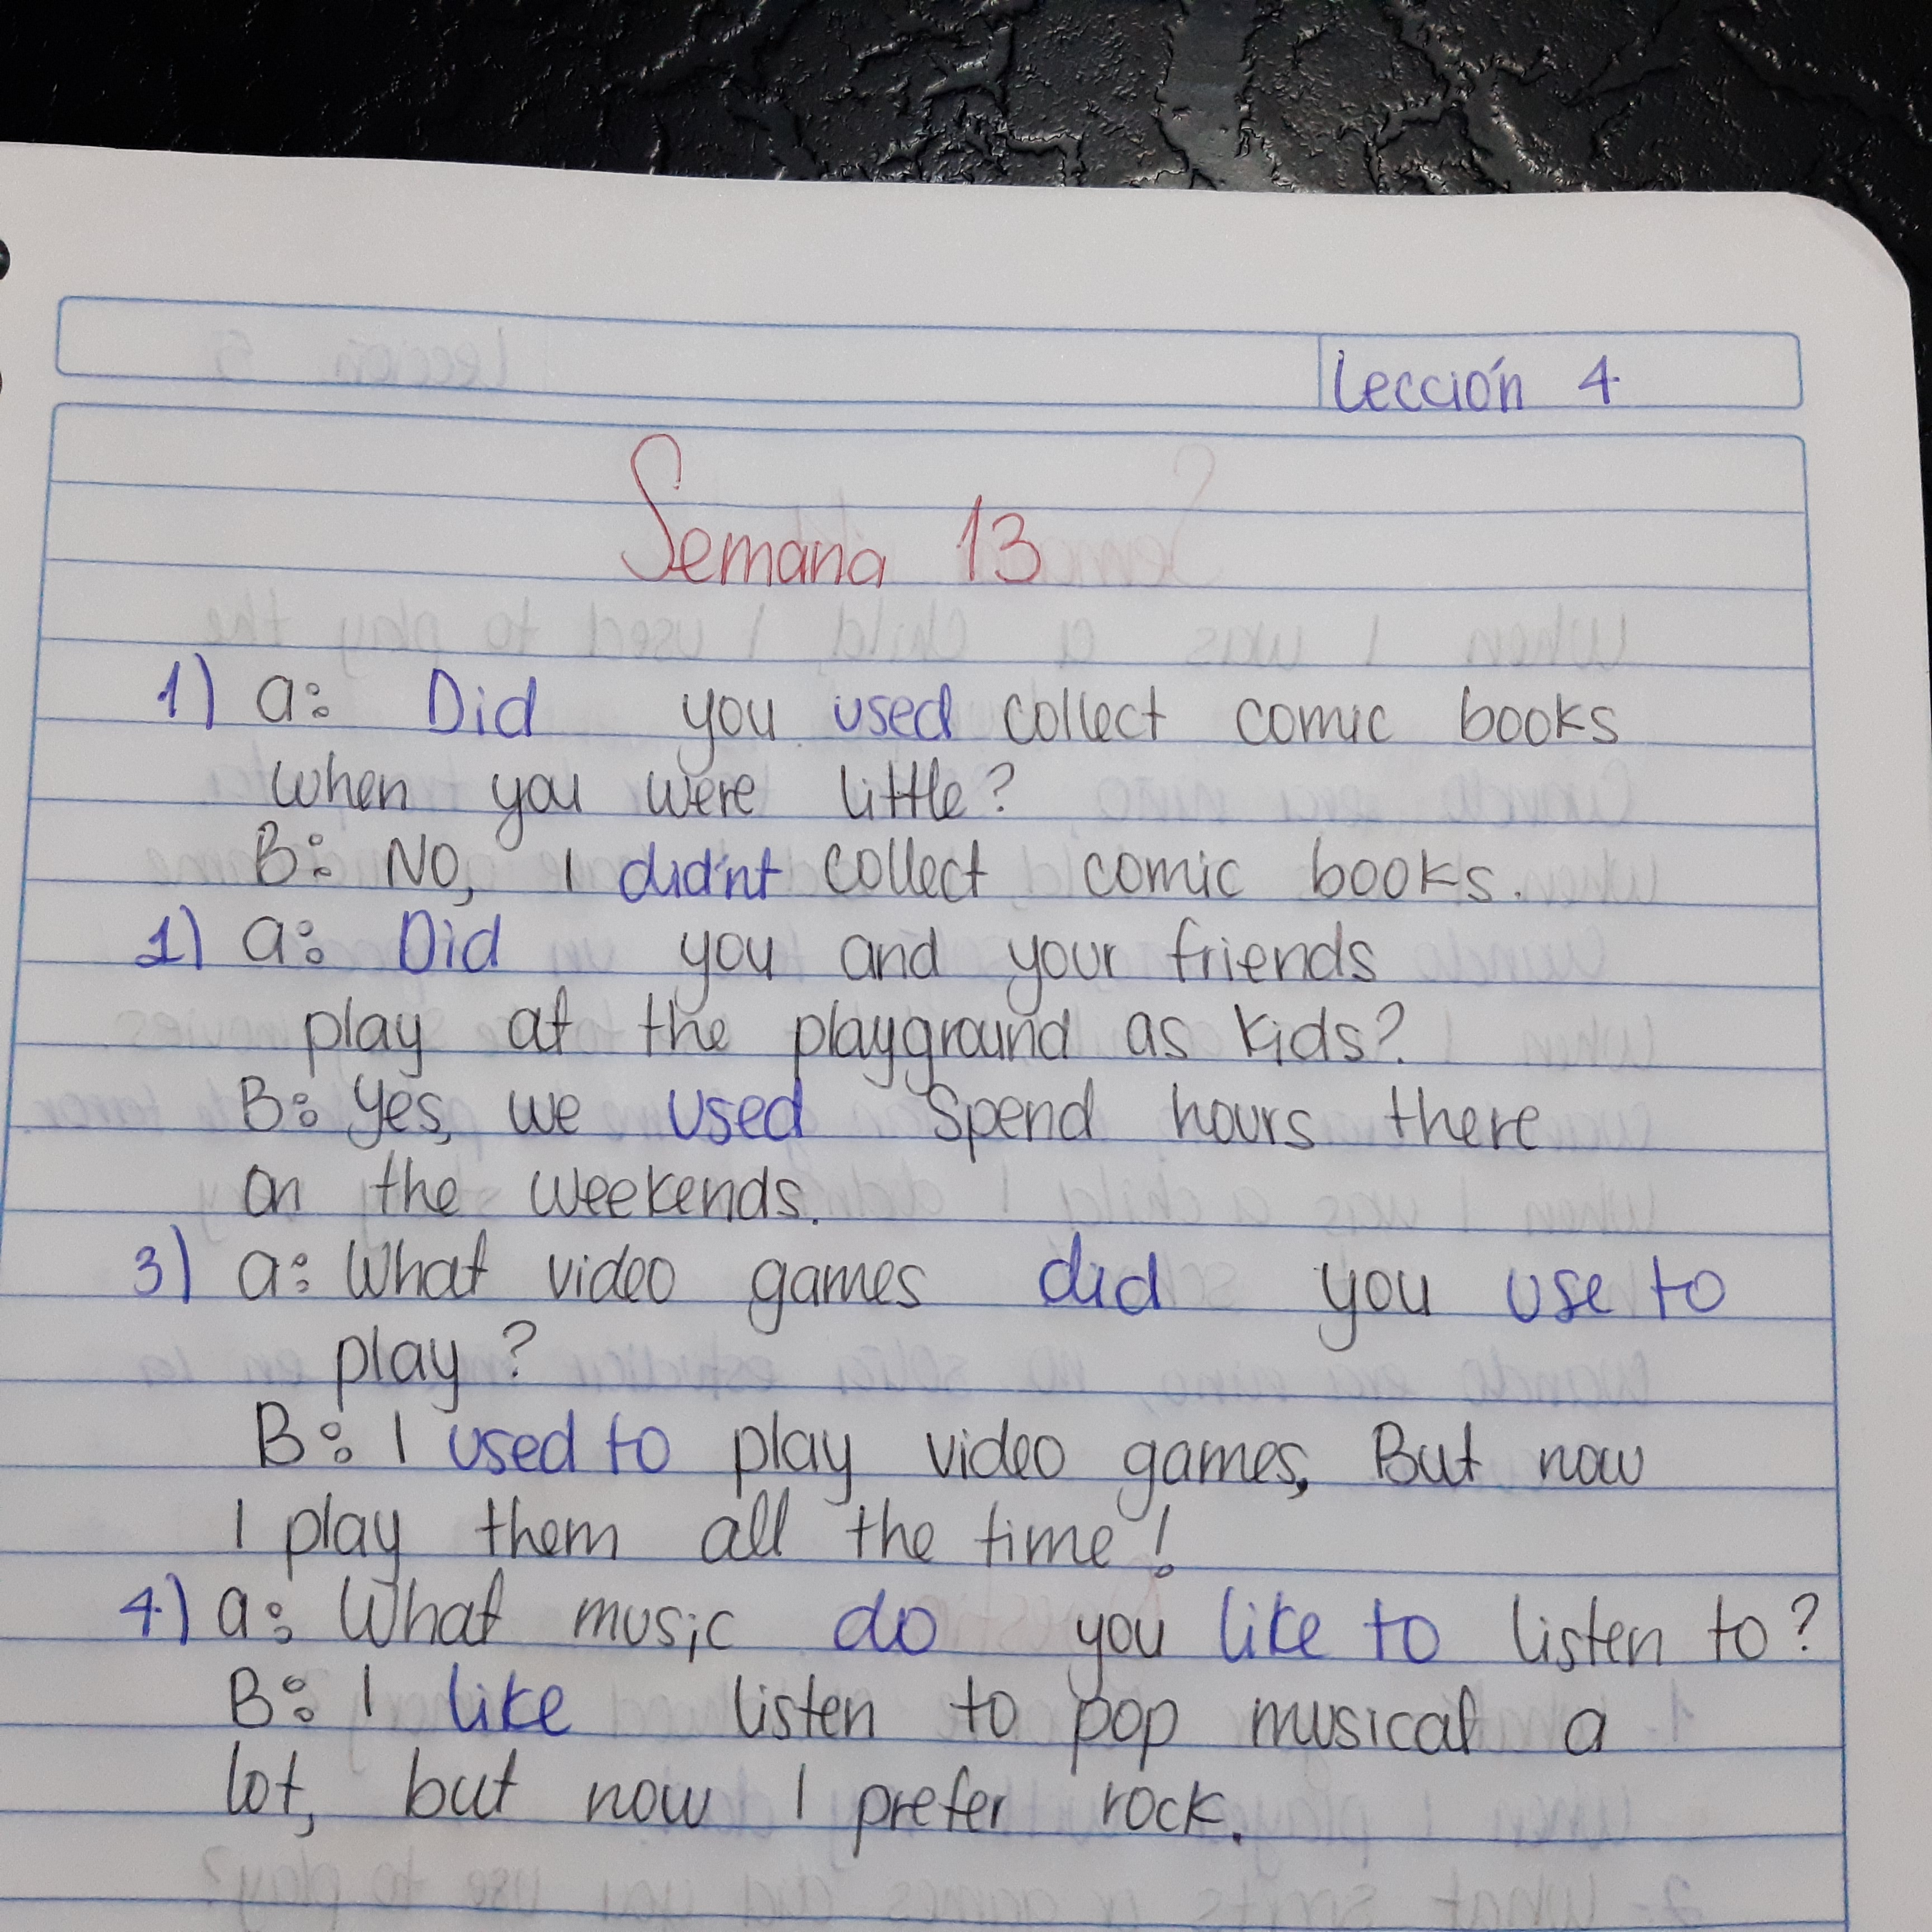 Lección 4
Semana 13
1) a: Did you used collect comic books
when you were little?
B: No, I didn't collect comic books.
2) a: Did you and your friends
play at the playground as kids?
B: Yes, we used Spend hours there
on the weekends.
3) a: What video games did you use to
play?
B: I used to play video games, But now
I play them all the time!
4) a: What music do you like to listen to?
B: I like listen to pop musical a
lot, but now I prefer rock.